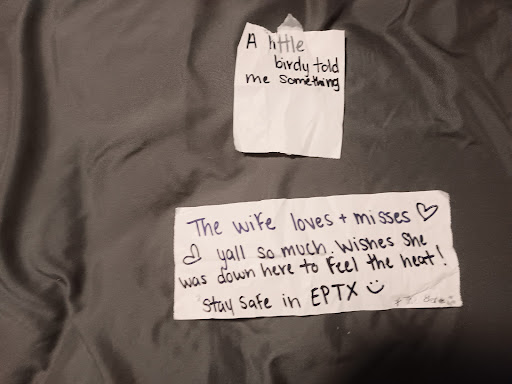 A little
birdy told
me something
The wife loves + misses ♡
♡ yall so much. Wishes she
was down here to feel the heat!
Stay safe in EPTX